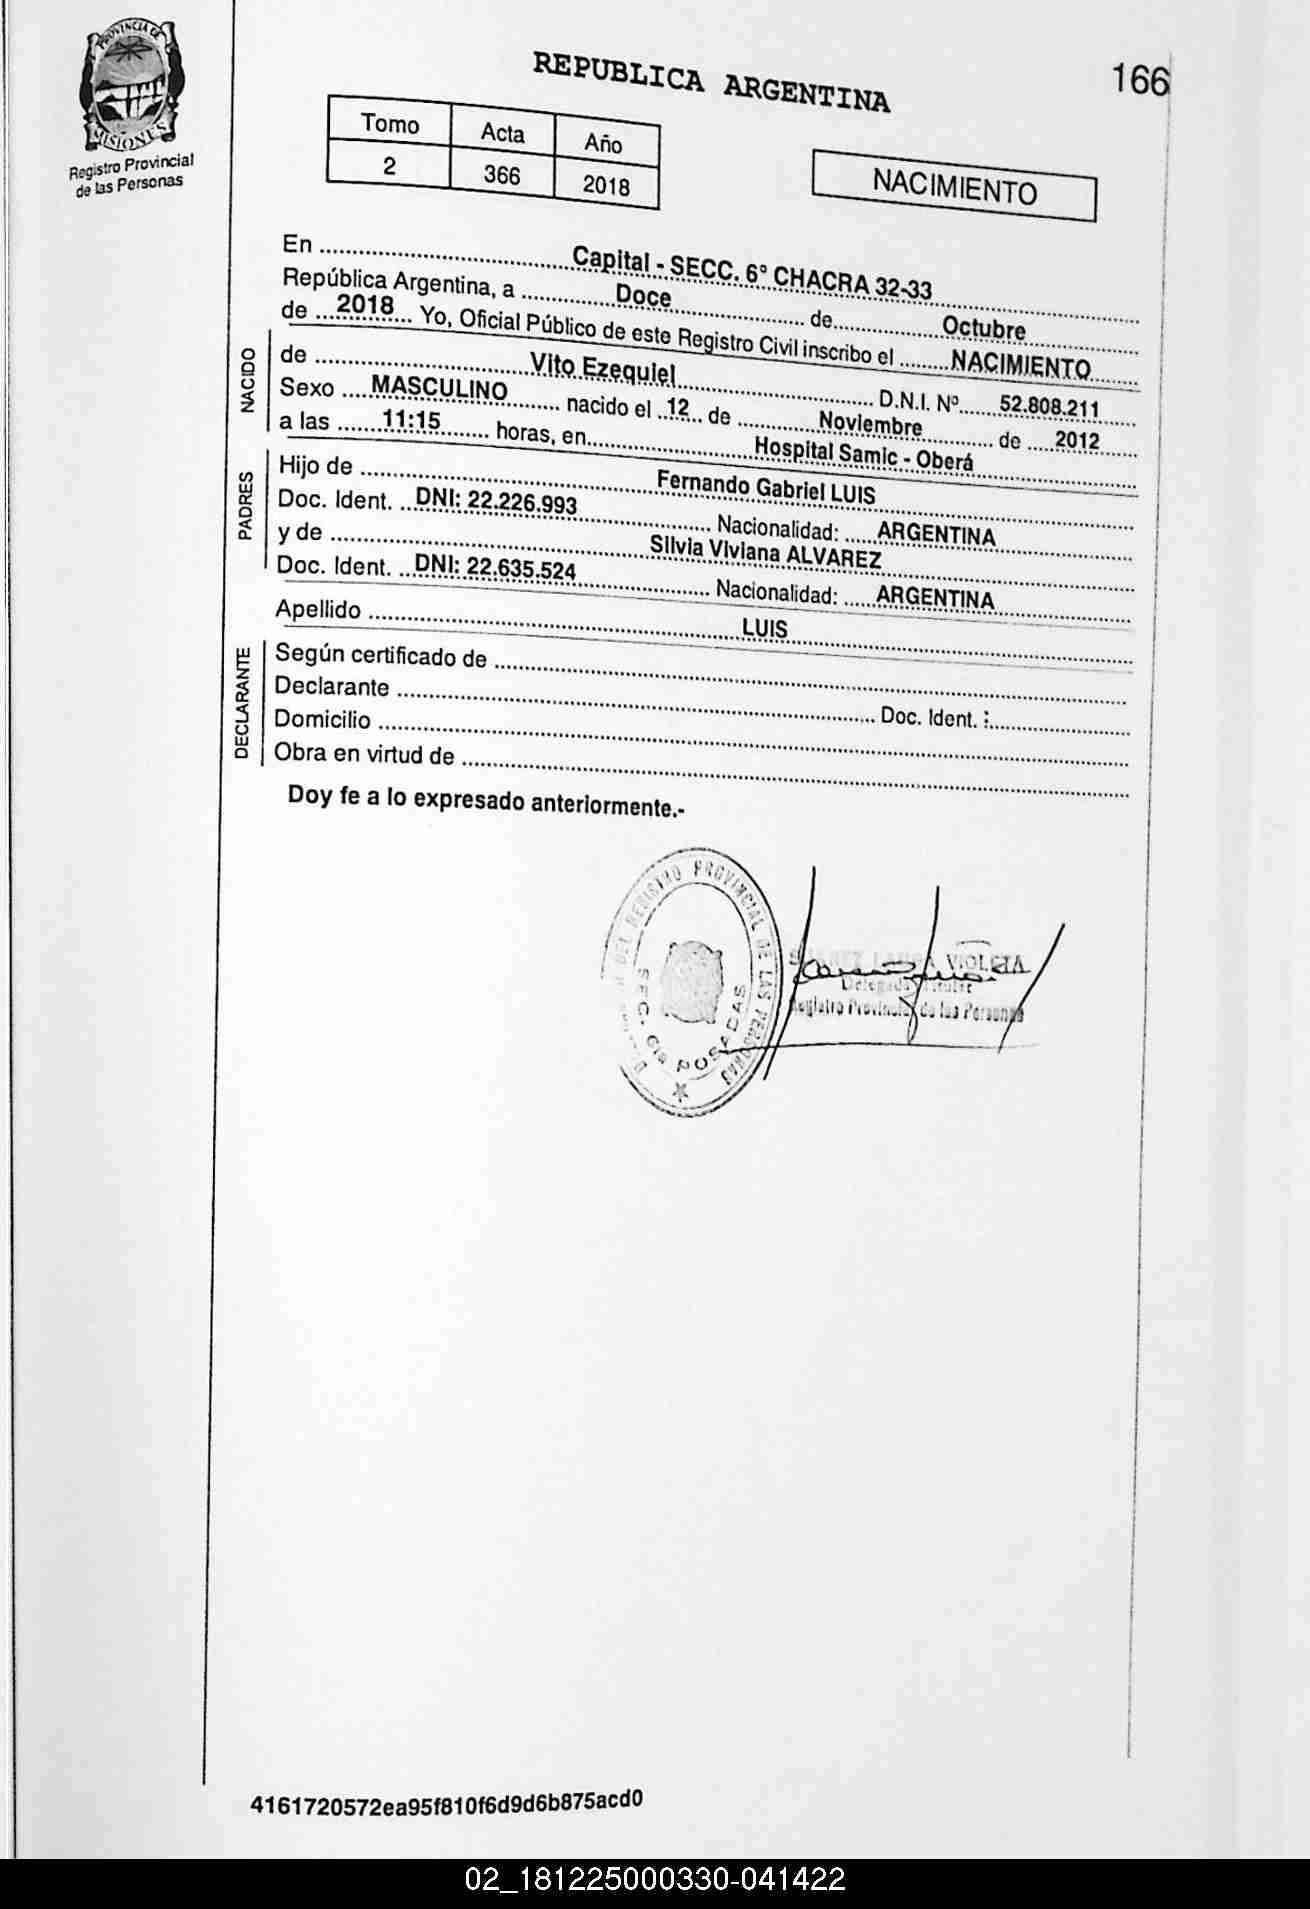 PROVINCIA DE
MISIONES
Registro Provincial
de las Personas
REPUBLICA ARGENTINA
166
Tomo Acta Año
2 366 2018
NACIMIENTO
En ........ Capital - SECC. 6° CHACRA 32-33 ........
República Argentina, a ........ Doce ........ de ........ Octubre ........
de ... 2018 ... Yo, Oficial Público de este Registro Civil inscribo el ........ NACIMIENTO ........
NACIDO
de ........ Vito Ezequiel ........ D.N.I. Nº ...... 52.808.211 ......
Sexo .... MASCULINO ........ nacido el .. 12 .. de ........ Noviembre ........ de .... 2012 ......
a las ...... 11:15 ........ horas, en ........ Hospital Samic - Oberá ........
PADRES
Hijo de ........ Fernando Gabriel LUIS ........
Doc. Ident. .. DNI: 22.226.993 ........ Nacionalidad: ..... ARGENTINA ........
y de ........ Silvia Viviana ALVAREZ ........
Doc. Ident. .. DNI: 22.635.524 ........ Nacionalidad: ..... ARGENTINA ........
Apellido ........ LUIS ........
DECLARANTE
Según certificado de ........
Declarante ........ Doc. Ident. : ........
Domicilio ........
Obra en virtud de ........
Doy fe a lo expresado anteriormente.-
DEL REGISTRO PROVINCIAL DE LAS PERSONAS
SEC. 6ta POSADAS
VIOLETA
Delegada Titular
Registro Provincial de las Personas
4161720572ea95f810f6d9d6b875acd0
02_181225000330-041422